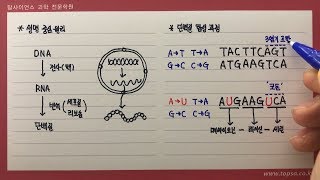 일사이언스 과학 전문학원
* 생명 중심 원리
DNA
전사(핵)
RNA
번역 (세포질 리보솜)
단백질
* 단백질 합성 과정
3염기 조합
A→T T→A
G→C C→G
TACTTCAGT
ATGAAGTCA
"코돈"
A→U T→A
G→C C→G
AUGAAGUCA
메싸이오닌 - 라이신 - 세린
www.topss.co.k